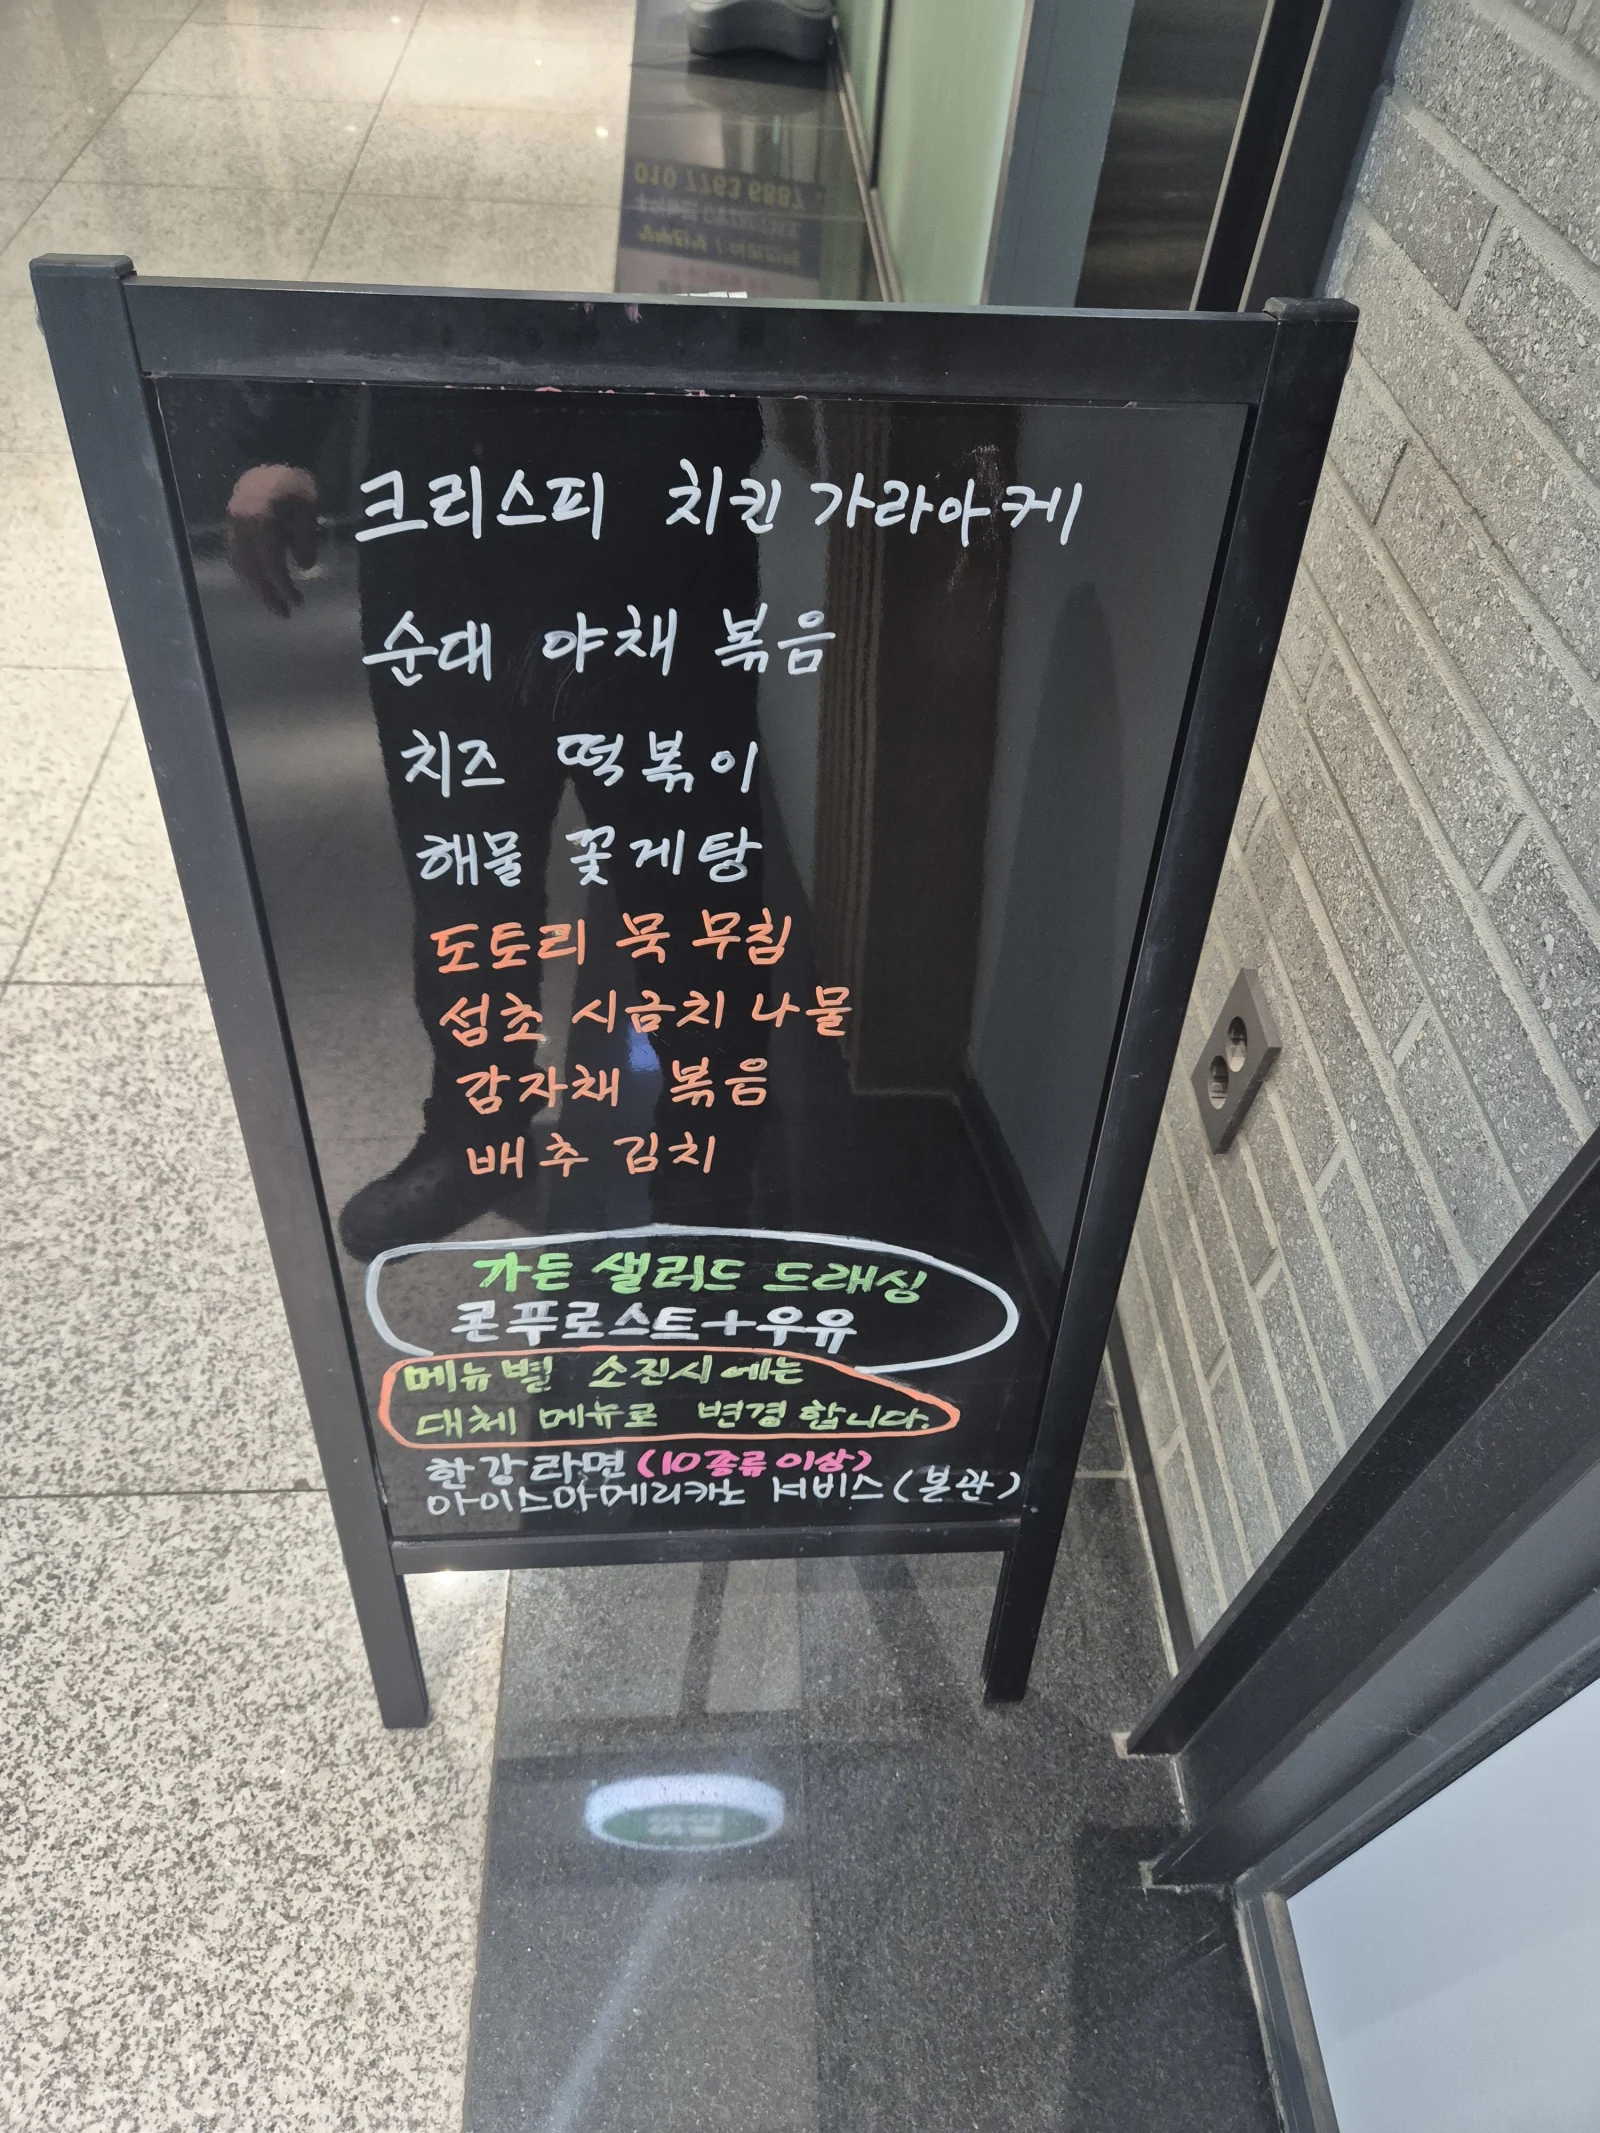 크리스피 치킨 가라아케
순대 야채 볶음
치즈 떡볶이
해물 꽃게탕
도토리 묵 무침
섬초 시금치 나물
감자채 볶음
배추 김치
가든 샐러드 드래싱
콘푸로스트+우유
메뉴별 소진시에는
대체 메뉴로 변경합니다.
한강라면 (10종류 이상)
아이스아메리카노 서비스 (본관)